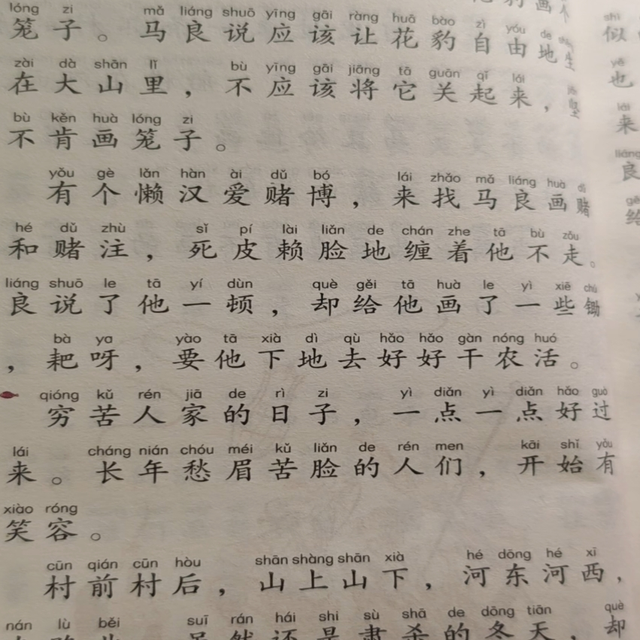 lóng zi mǎ liáng shuō yīng gāi ràng huā bào zì yóu de
笼子。马良说应该让花豹自由地
zài dà shān lǐ bù yīng gāi jiāng tā guān qǐ lái
在大山里，不应该将它关起来，
bù kěn huà lóng zi
不肯画笼子。
yǒu gè lǎn hàn ài dǔ bó lái zhǎo mǎ liáng huà dǔ
有个懒汉爱赌博，来找马良画赌
hé dǔ zhù sǐ pí lài liǎn de chán zhe tā bù zǒu
和赌注，死皮赖脸地缠着他不走。
liáng shuō le tā yí dùn què gěi tā huà le yì xiē chú
良说了他一顿，却给他画了一些锄
bà ya yào tā xià dì qù hǎo hǎo gàn nóng huó
，耙呀，要他下地去好好干农活。
qióng kǔ rén jiā de rì zi yì diǎn yì diǎn hǎo guò
穷苦人家的日子，一点一点好过
lái cháng nián chóu méi kǔ liǎn de rén men kāi shǐ yǒu
来。长年愁眉苦脸的人们，开始有
xiào róng
笑容。
cūn qián cūn hòu shān shàng shān xià hé dōng hé xī
村前村后，山上山下，河东河西，
nán lù běi suī rán hái shi sù shā de dōng tiān què
虽然还是肃杀的冬天，却
shì
似
yě
也
lái
来
liáng
良
gěi
给